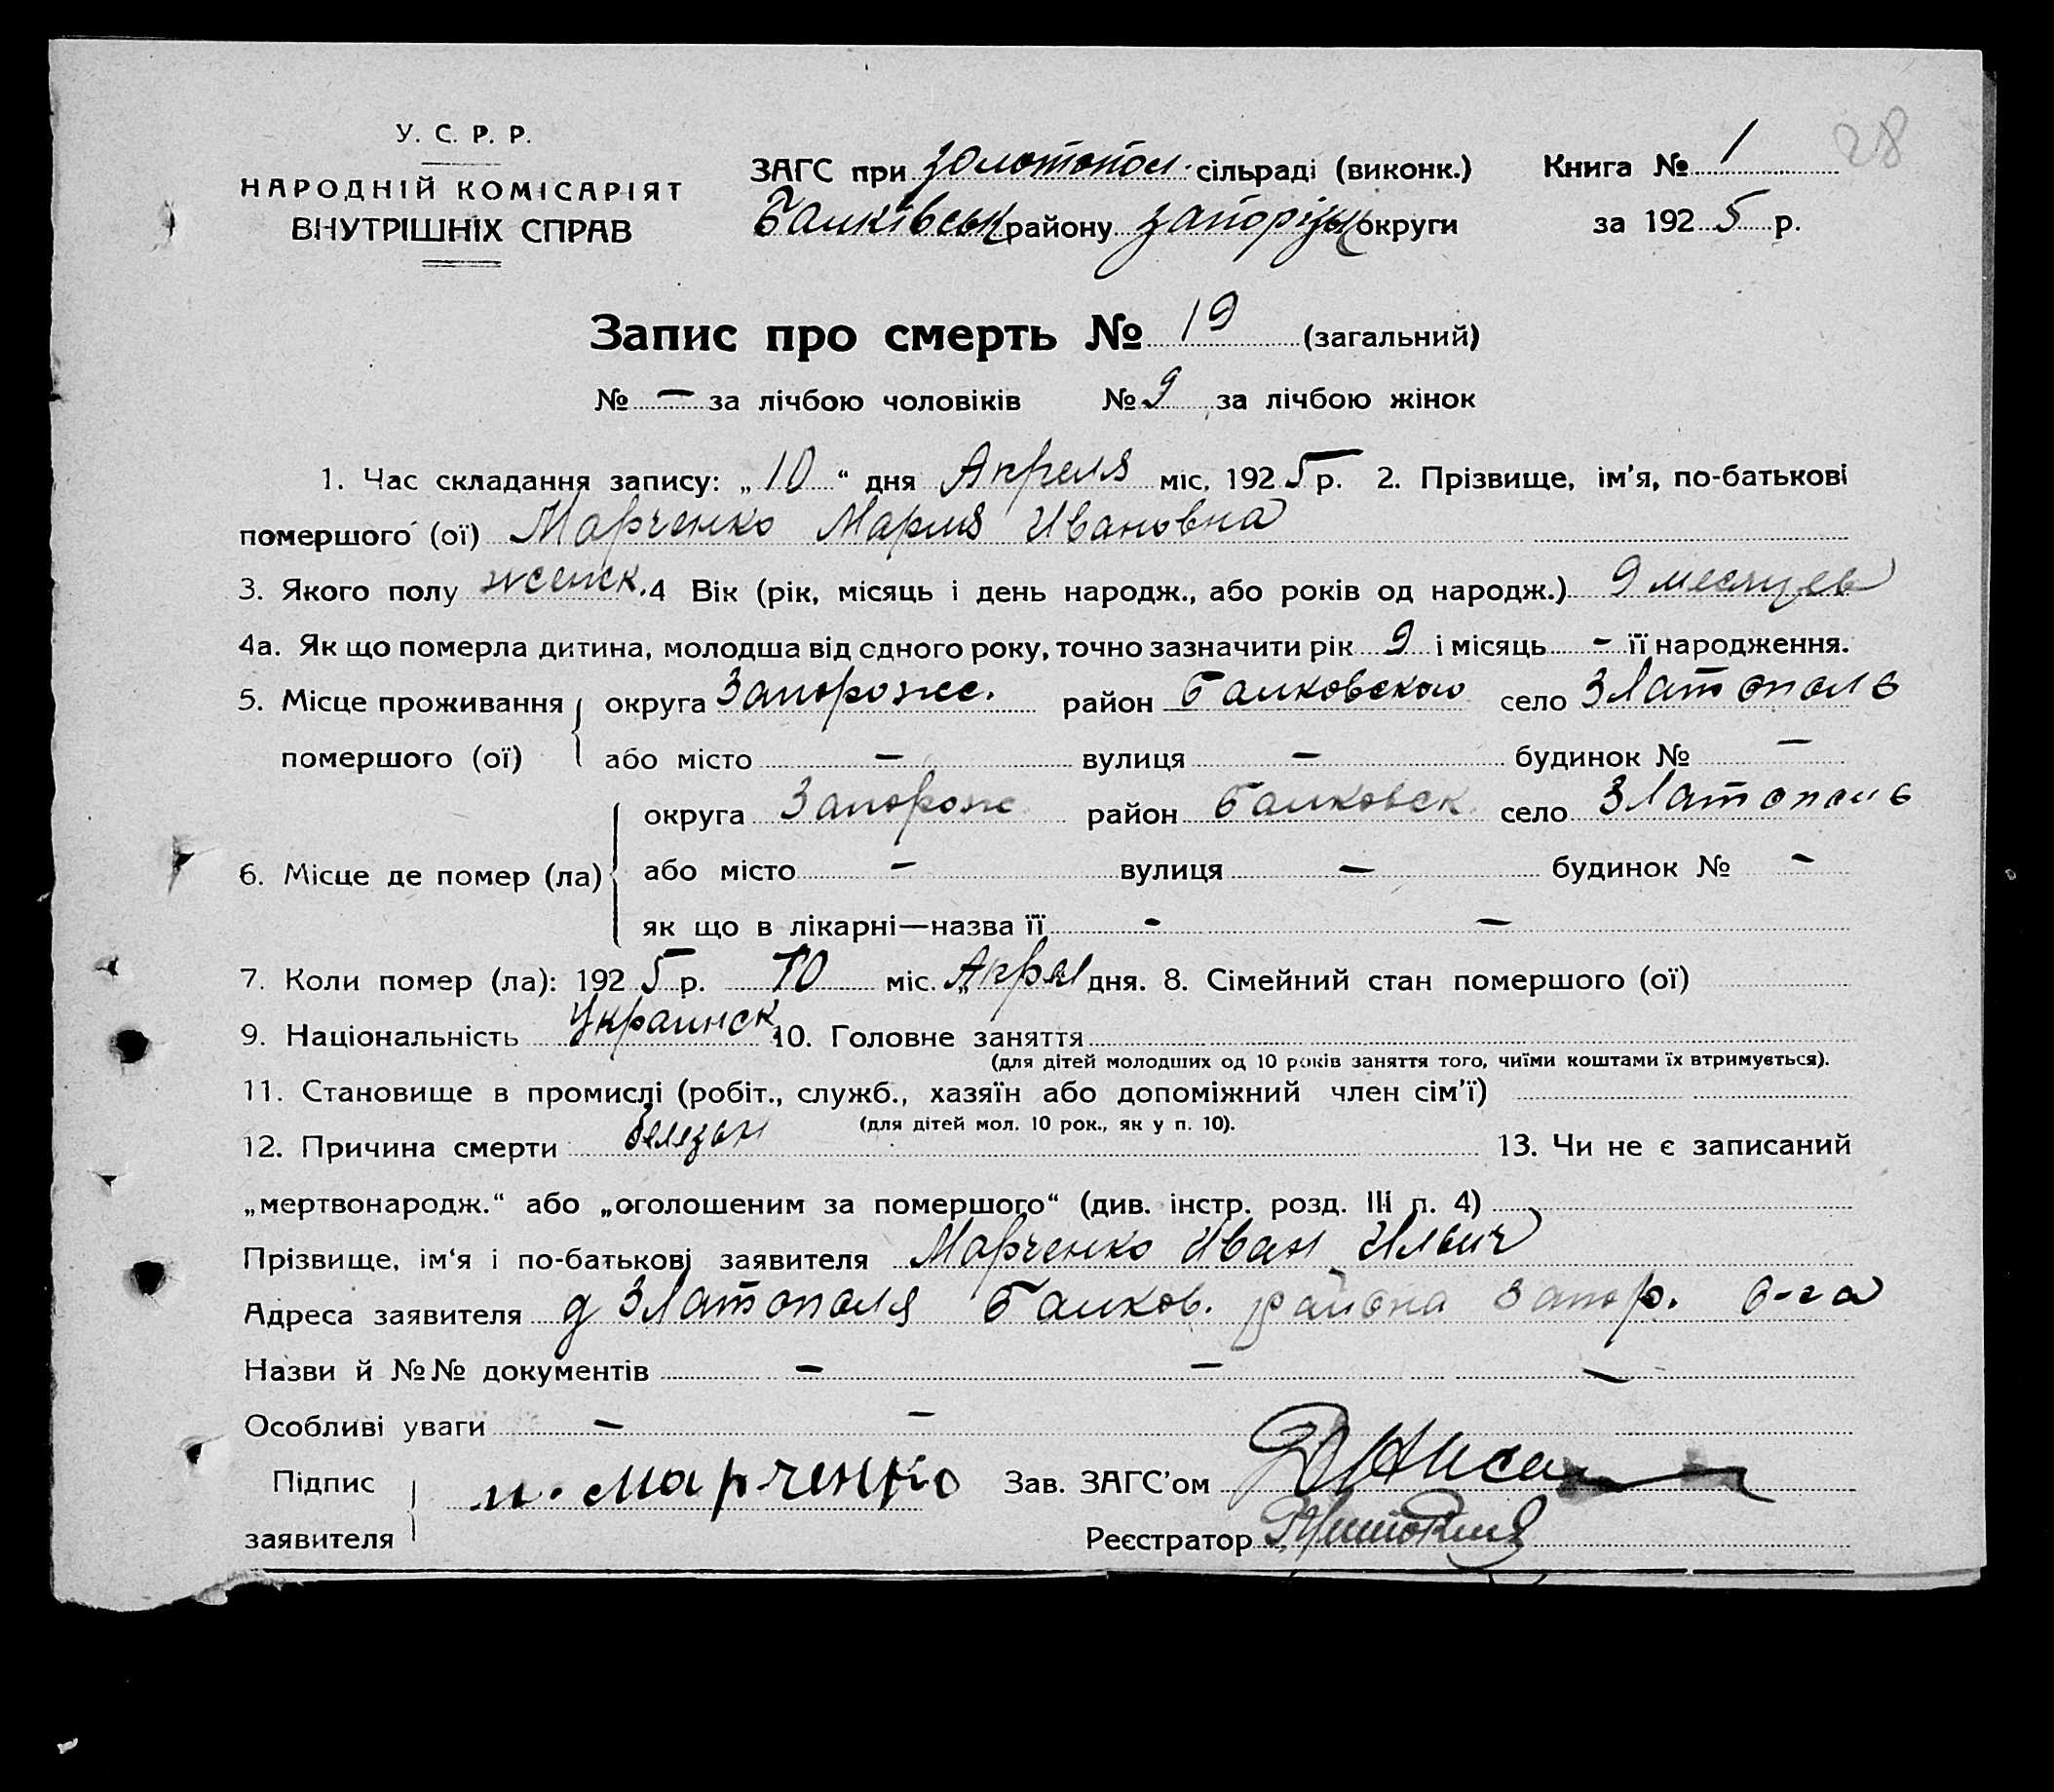 28
У. С. Р. Р.
НАРОДНІЙ КОМІСАРІЯТ
ВНУТРІШНІХ СПРАВ
ЗАГС при Золотопол. сільраді (виконк.) Книга № 1
Балківськ району Запорізьк округи за 1925 р.
Запис про смерть № 19 (загальний)
№ — за лічбою чоловіків № 9 за лічбою жінок
1. Час складання запису: „10“ дня Апреля міс. 1925 р. 2. Прізвище, ім'я, по-батькові
помершого (ої) Марченко Мария Ивановна
3. Якого полу женск. 4 Вік (рік, місяць і день народж., або років од народж.) 9 месяцев
4а. Як що померла дитина, молодша від одного року, точно зазначити рік 9 і місяць - її народження.
5. Місце проживання округа Запорожс. район Балковского село Златополь
помершого (ої) або місто — вулиця — будинок № —
округа Запорож район Балковск село Златополь
6. Місце де помер (ла) або місто — вулиця — будинок № -
як що в лікарні—назва її - —
7. Коли помер (ла): 1925 р. 10 міс. „Апрел дня. 8. Сімейний стан помершого (ої)
9. Національність Украинск 10. Головне заняття
(для дітей молодших од 10 років заняття того, чиїми коштами їх втримується).
11. Становище в промислі (робіт., служб., хазяїн або допоміжний член сім'ї)
(для дітей мол. 10 рок., як у п. 10).
12. Причина смерти 13. Чи не є записаний
„мертвонародж.“ або „оголошеним за помершого“ (див. інстр. розд. III п. 4)
Прізвище, ім'я і по-батькові заявителя Марченко Иван Ильич
Адреса заявителя д Златополя Балков. района Запор. о-га
Назви й №№ документів — — —
Особливі уваги — —
Підпис
заявителя и. Марченко Зав. ЗАГС'ом
Реєстратор